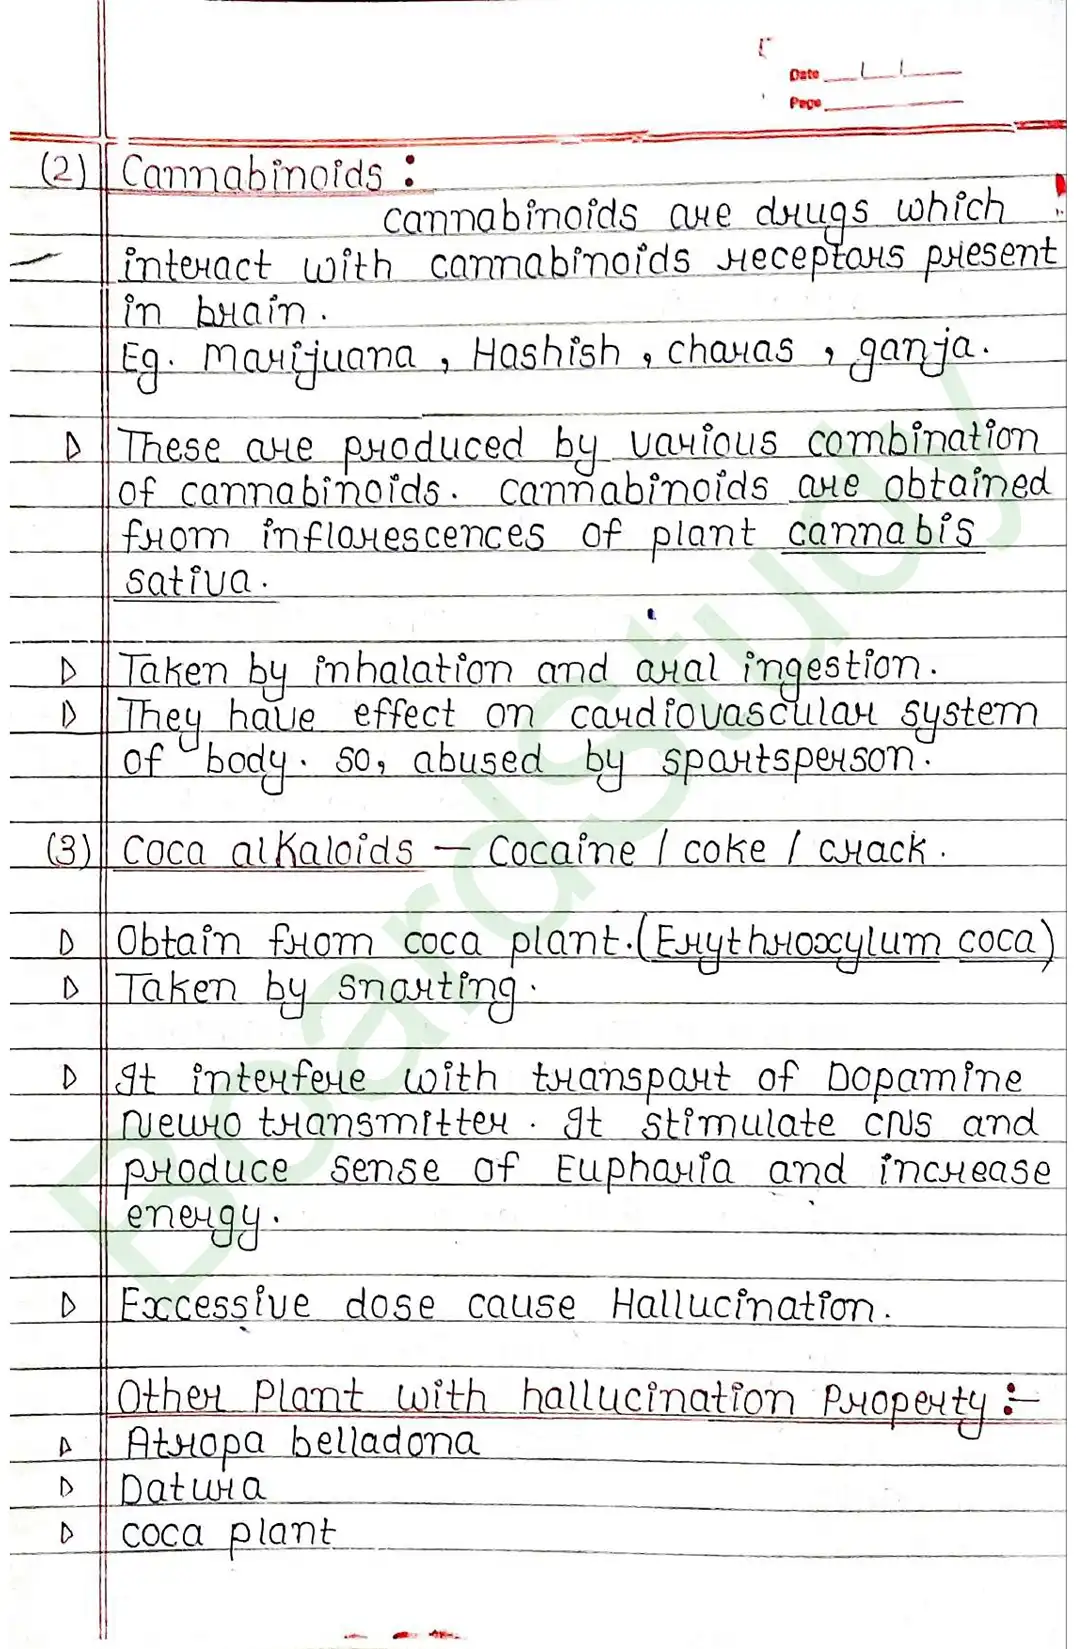 Date
Page
(2) Cannabinoids :
cannabinoids are drugs which
interact with cannabinoids receptors present
in brain.
Eg. Marijuana , Hashish , charas , ganja.
▷ These are produced by various combination
of cannabinoids. cannabinoids are obtained
from inflorescences of plant cannabis
sativa.
▷ Taken by inhalation and oral ingestion.
▷ They have effect on cardiovascular system
of body. so, abused by sportsperson.
(3) Coca alkaloids — Cocaine / coke / crack.
▷ Obtain from coca plant.(Erythroxylum coca)
▷ Taken by snorting.
▷ It interfere with transport of Dopamine
Neuro transmitter. It stimulate CNS and
produce sense of Euphoria and increase
energy.
▷ Excessive dose cause Hallucination.
Other Plant with hallucination Property :-
▷ Atropa belladona
▷ Datura
▷ coca plant
BoardStudy